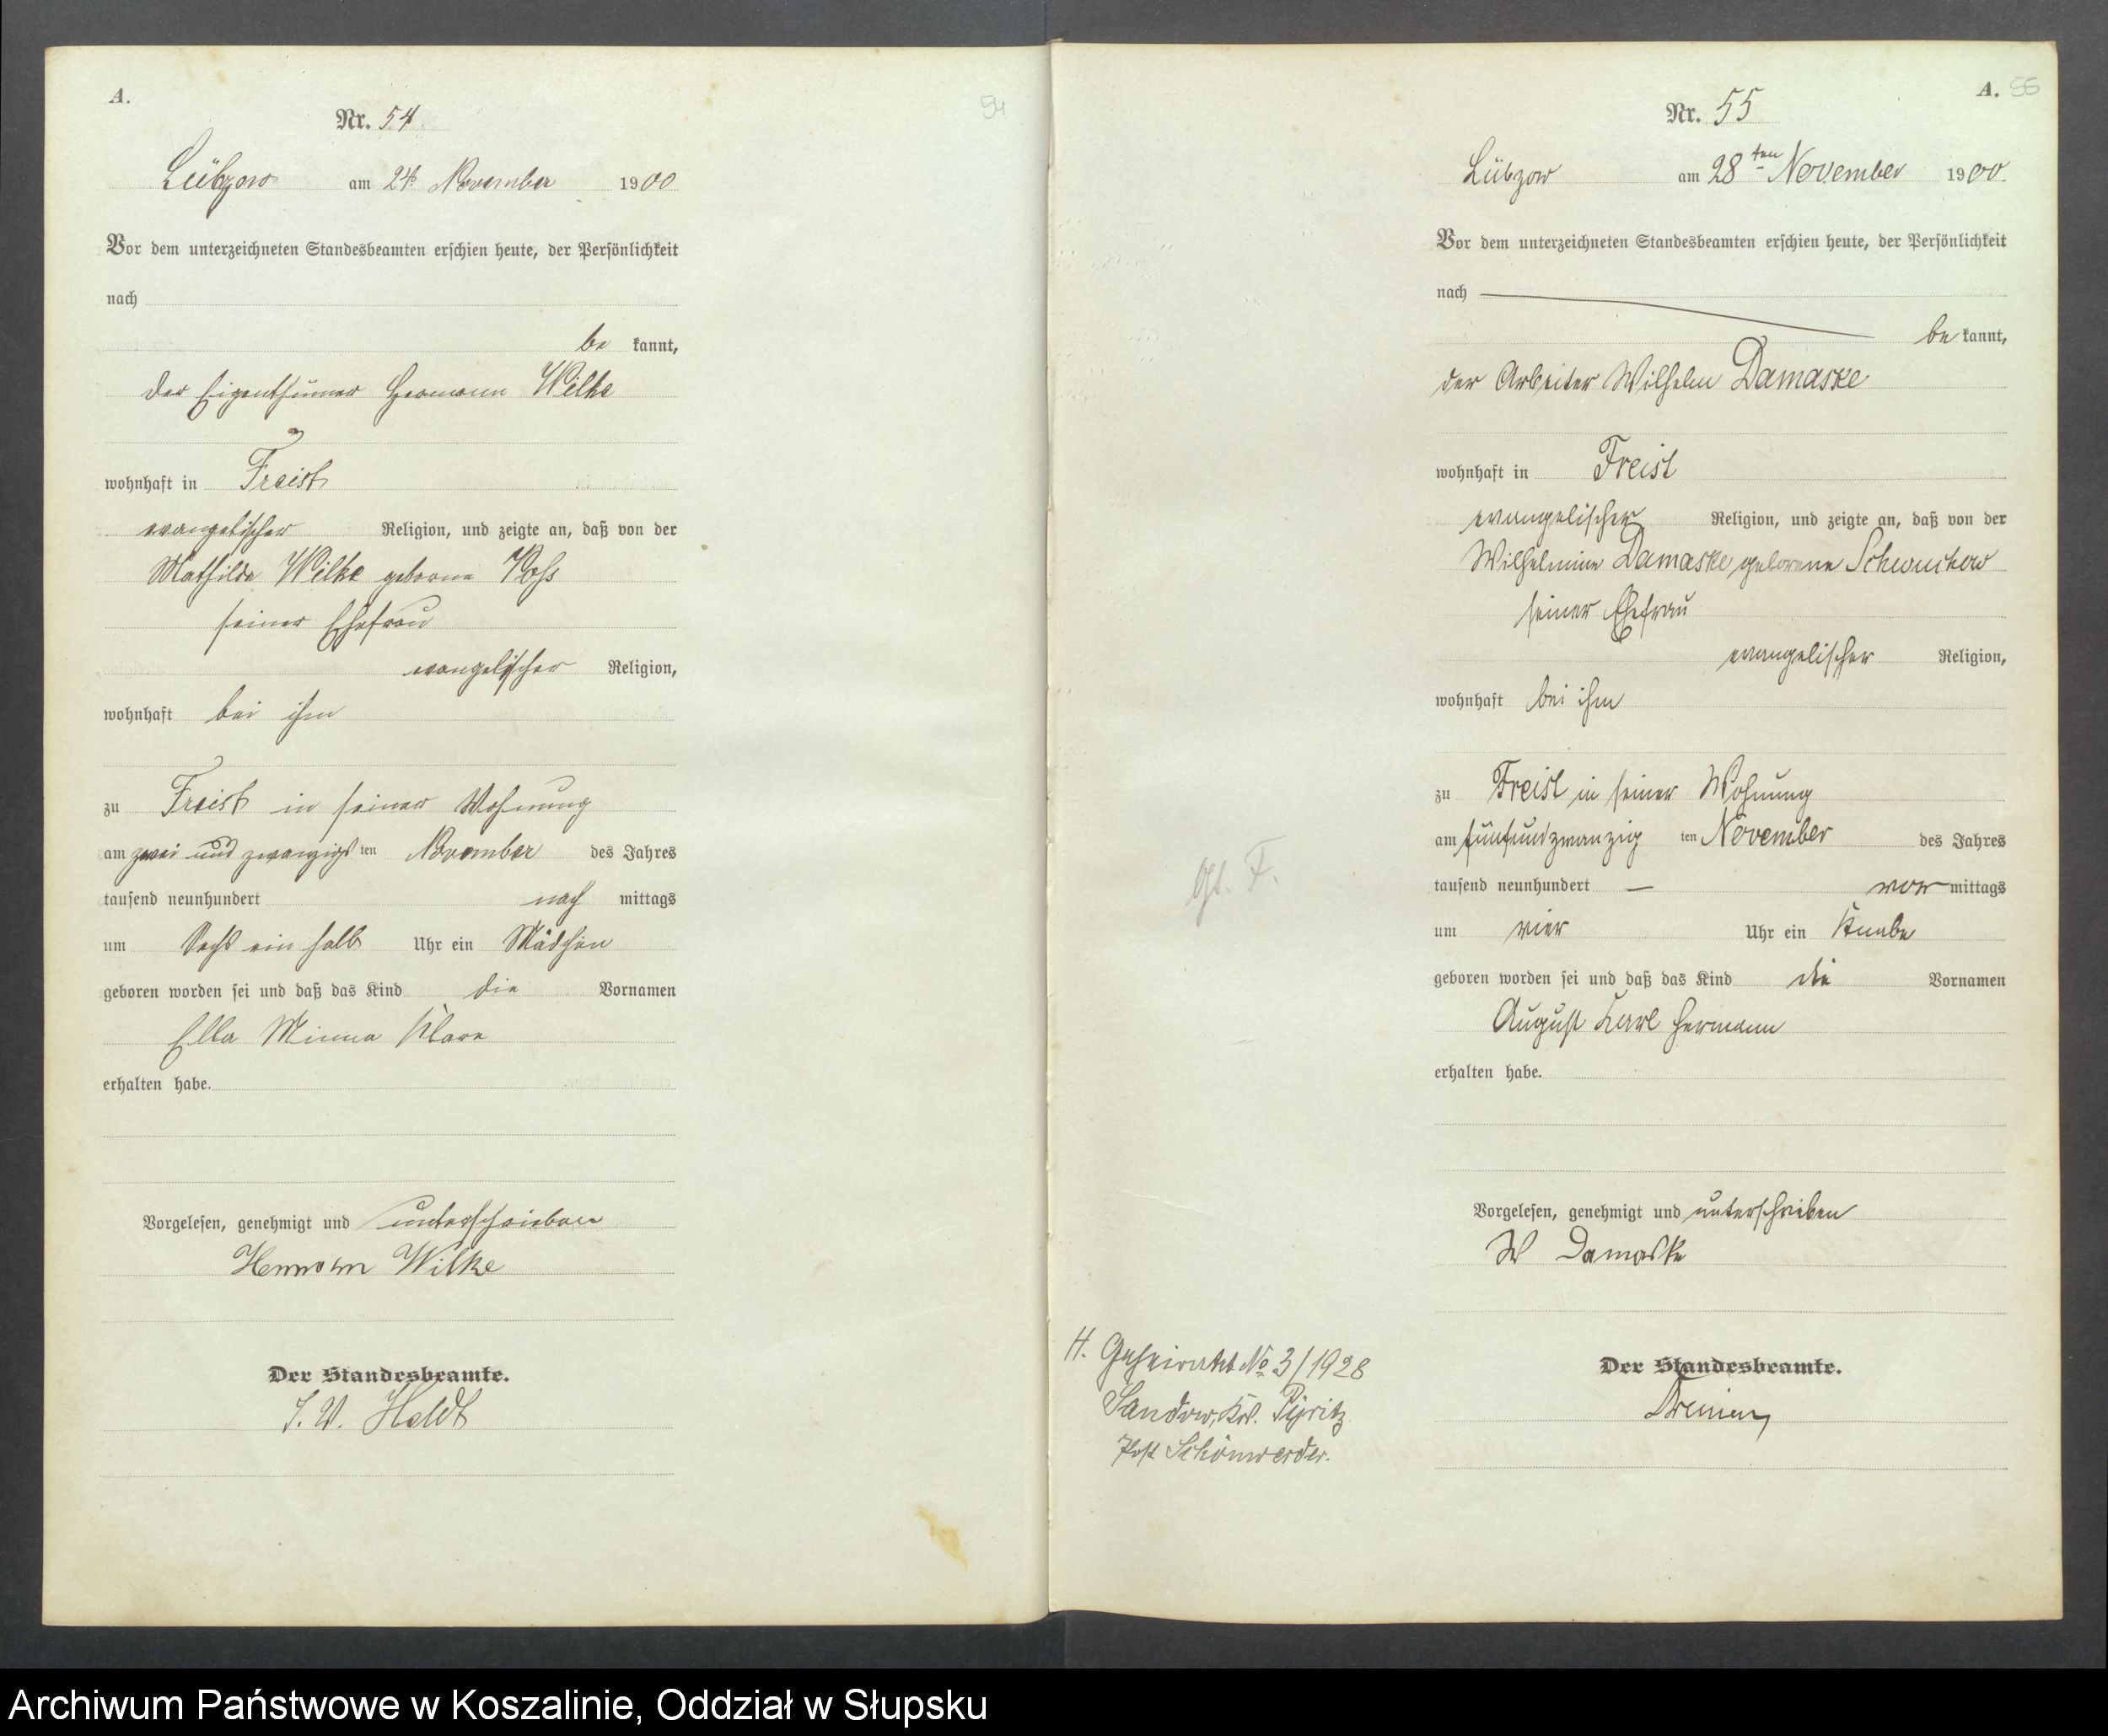 A.
Nr. 54
Lübzow am 24 November 1900
Vor dem unterzeichneten Standesbeamten erschien heute, der Persönlichkeit
nach
be kannt,
der Eigenthümer Hermann Wilke
wohnhaft in Freist
evangelischer Religion, und zeigte an, daß von der
Mathilde Wilke geborne Voß
seiner Ehefrau
evangelischer Religion,
wohnhaft bei ihm
zu Freist in seiner Wohnung
am zwei und zwanzigsten November des Jahres
tausend neunhundert nach mittags
um Sechs ein halb Uhr ein Mädchen
geboren worden sei und daß das Kind die Vornamen
Ella Minna Klara
erhalten habe.
Vorgelesen, genehmigt und unterschrieben
Hermann Wilke
Der Standesbeamte.
I. V. Heldt
54
A. 55
Nr. 55
Lübzow am 28ten November 1900.
Vor dem unterzeichneten Standesbeamten erschien heute, der Persönlichkeit
nach
be kannt,
der Arbeiter Wilhelm Damaske
wohnhaft in Freist
evangelischer Religion, und zeigte an, daß von der
Wilhelmine Damaske geborene Schwuchow
seiner Ehefrau
evangelischer Religion,
wohnhaft bei ihm
zu Freist in seiner Wohnung
am fünfundzwanzig ten November des Jahres
tausend neunhundert — vor mittags
um vier Uhr ein Knabe
geboren worden sei und daß das Kind die Vornamen
August Karl Hermann
erhalten habe.
Vorgelesen, genehmigt und unterschrieben
W Damaske
Der Standesbeamte.
H. Geheiratet No 3/1928
Sandow, Krs. Pyritz
Post Schönwerder.
Archiwum Państwowe w Koszalinie, Oddział w Słupsku